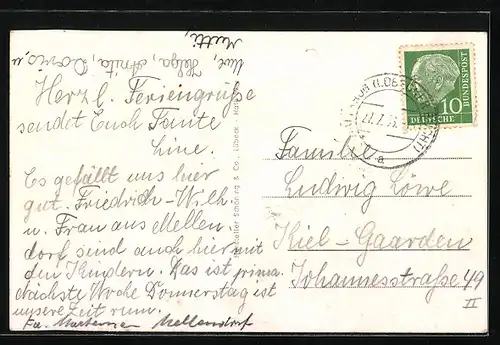 Mutti,
Uwe, Helga, Anita, Doris, u
Herzl. Feriengrüße
sendet Euch Tante
Line.
Es gefällt uns hier
gut. Friedrich-Wilh.
u. Frau aus Mellen-
dorf sind auch hier mit
den Kindern. Das ist prima.
Nächste Woche Donnerstag ist
unsere Zeit rum.
Mellendorf
Schöning & Co., Lübeck
10
DEUTSCHE
BUNDESPOST
a
Familie
Ludwig Löwe
Kiel-Gaarden
Johannesstraße 49
II